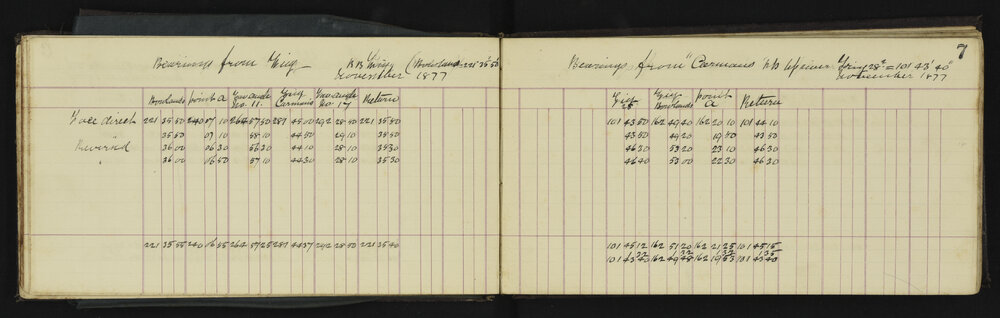 Bearings from Trig
November 1877
Rowlands point A No. 11. Trig Carmans No. 17 Return
Face direct 221 35 50 240 07 10 264 57 50 289 45 00 292 28 50 221 35 50
35 50 07 10 58 10 44 50 29 10 35 50
Reversed 36 00 06 30 56 30 44 10 28 10 35 30
" 36 00 06 50 57 10 44 30 28 10 35 30
221 35 55 240 06 55 264 57 25 289 44 37 292 28 50 221 35 40
7
Bearings from "Carmans Trig 28 = 101° 43' 40"
November 1877
Trig 28 Trig Rowlands point A Return
101 43 50 162 49 40 162 20 10 101 44 10
43 50 49 20 19 50 43 50
46 30 53 20 23 10 46 30
46 40 53 00 22 30 46 30
101 45 12 162 51 20 162 21 25 101 45 15
1 32 1 32 1 32 1 35
101 43 40 162 49 48 162 19 53 101 43 40